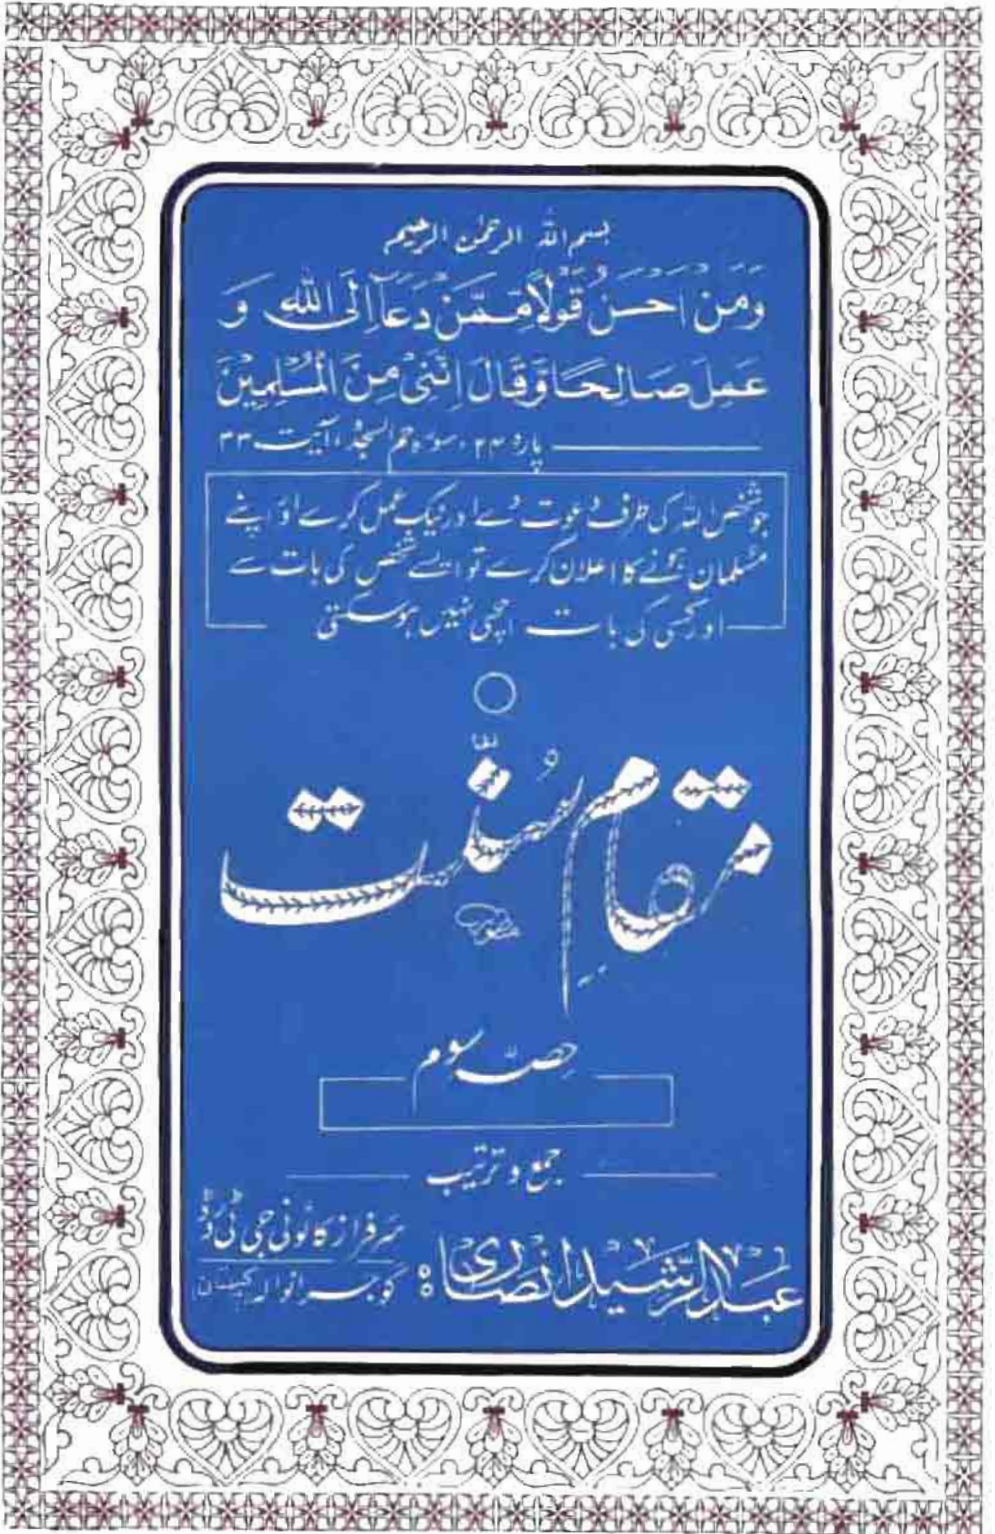 بسم اللہ الرحمٰن الرحیم
وَمَنْ اَحْسَنُ قَوْلًا مِّمَّنْ دَعَآ اِلَی اللہِ وَ
عَمِلَ صَالِحًا وَّقَالَ اِنَّنِیْ مِنَ الْمُسْلِمِیْنَ
پارہ ۲۴، سورہ حم السجدہ، آیت ۳۳
جو شخص اللہ کی طرف دعوت دے اور نیک عمل کرے اور اپنے
مسلمان ہونے کا اعلان کرے تو ایسے شخص کی بات سے
اور کسی کی بات اچھی نہیں ہو سکتی
مقامِ سُنّت
حصّہ سوم
جمع و ترتیب
عبدالرشید انصاری
سرفراز کالونی جی ٹی روڈ
گوجرانوالہ پاکستان